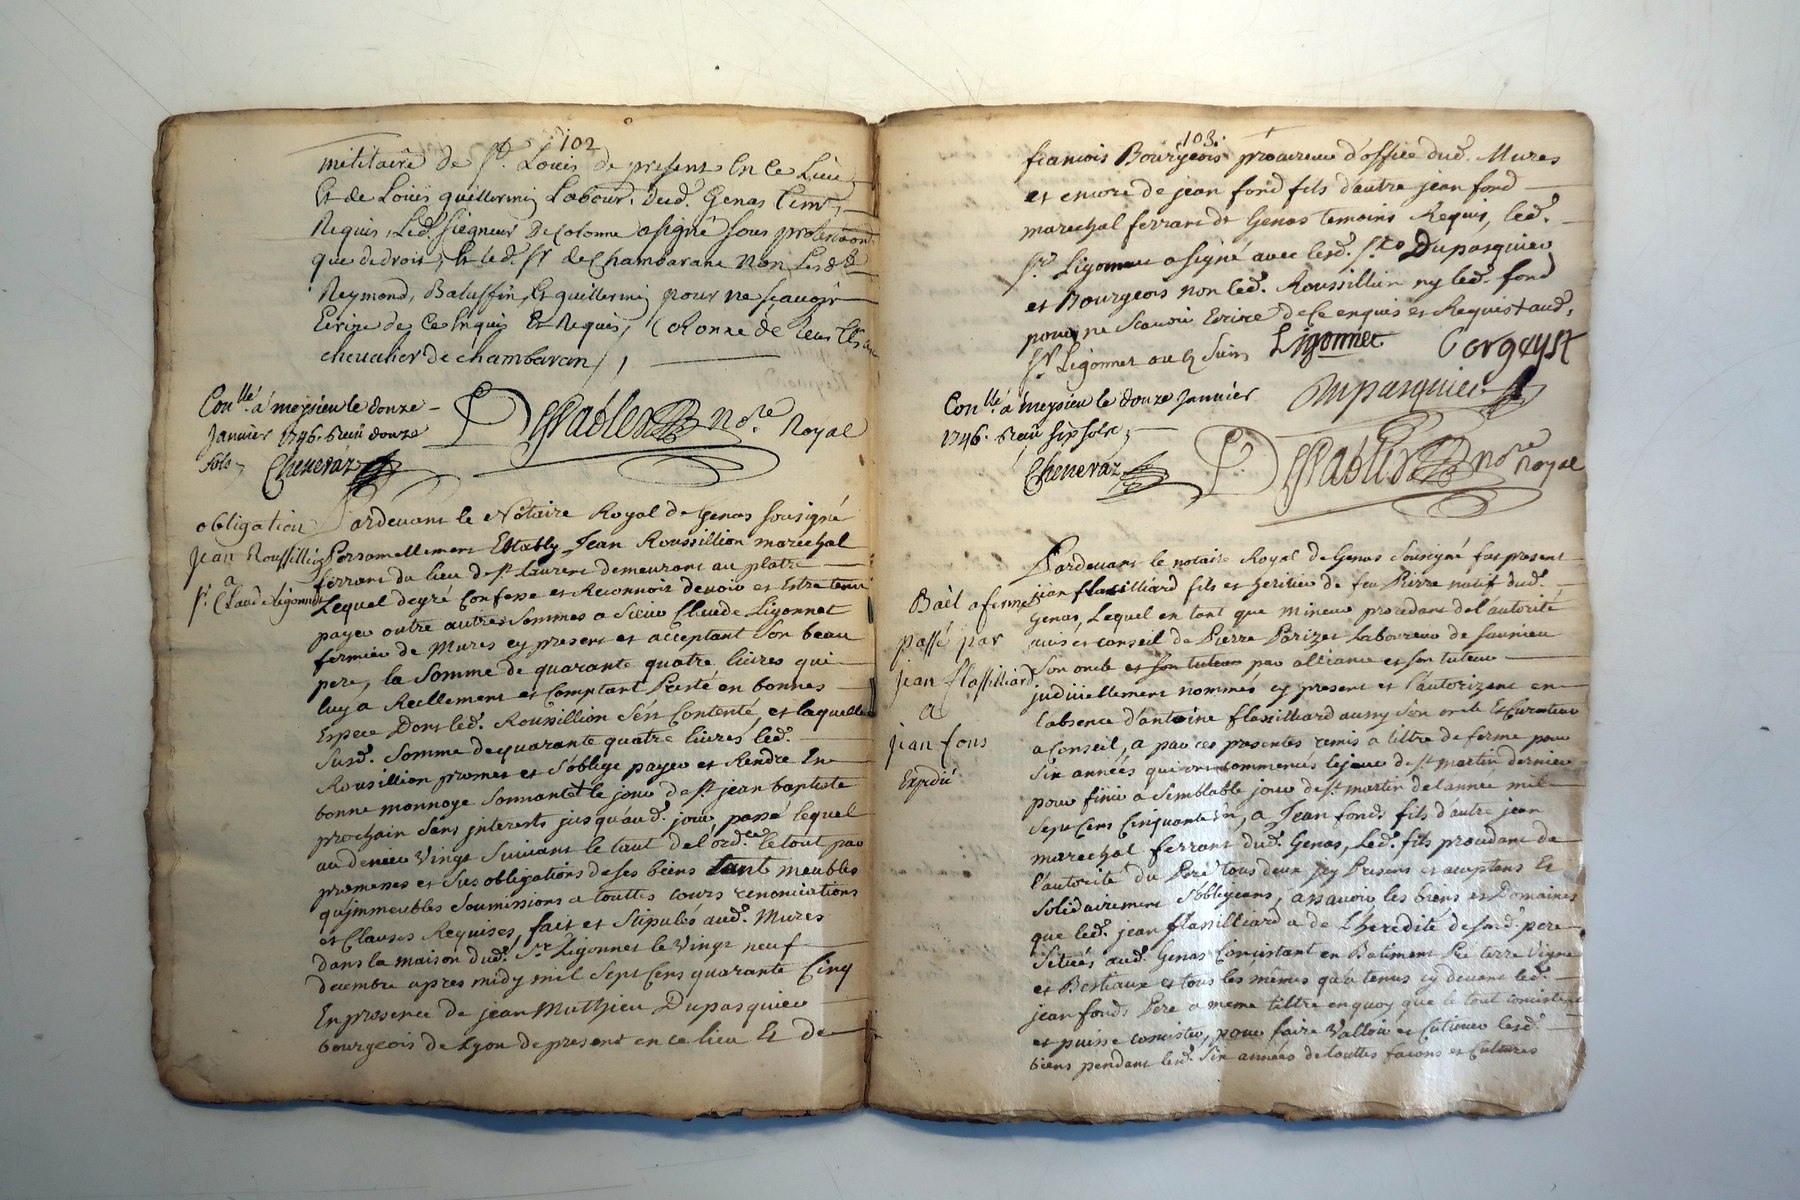 102
militaire de St. Louis de present En Ce Lieu
Et de Loüis guillermin Labour. dud. Genas tem.
Requis, Led. Siegneur De Colonne a signé sous protestaon
que de droit, Et led. Sr de Chambaran Non Lesd.
Reymond, Baluffin, Et guillermin pour ne sçauoir
Ecrire de Ce Enquis Et Requis,
chevalier de chambaran
Conllé. á meysieu le douze
Janvier 1746. Reçu douze
sols,
Cheneraz
Nore. Royal
obligation
Jean Roussillion
a
Sr. Claude Ligonnet
Pardevant le Nôtaire Royal de Genas soussigné
Personnellement Etably Jean Roussillion marechal
ferrant du lieu de St Laurent demeurant au platre
Lequel de gré Confesse et Reconnoit devoir et Estre tenu
payer outre autres Sommes a Sieur Claude Ligonnet
fermier de Mures cy present et acceptant Son beau
pere, la Somme de quarante quatre livres qui
luy a Reellement et Comptant Presté en bonnes
Espece Dont led. Roussillion S'est Contenté, et laquelle
Susd. Somme de quarante quatre livres led.
Rousillion promet et S'oblige payer et Rendre En
bonne monnoye Sonnante le jour de St. jean baptiste
prochain Sans interests jusqu'aud. jour, passé lequel
au denier Vingt Suivant le taut de l'ord.ce le tout par
promesses et sus obligations de ses biens tant meubles
qu'jmmeubles Soumissions a touttes cours renonciations
et Clauses Requises, fait et Stipulés aud. Mures
dans la maison dud. Sr. Ligonnet le Vingt neuf
decembre apres midy mil Sept Cens quarante Cinq
En presence de jean Mathieu Dupasquier
bourgeois de Lyon de present en ce lieu Et de
103.
francois Bourgeois procureur d'office dud. Mures
et encore de jean fond fils d'autre jean fond
marechal ferrant de Genas temoins Requis, led.
Sr. Ligonnet a signé avec lesd. Srs Dupasquier
et Bourgeois non led. Roussillion ny led. fond
pour ne Scavoir Ecrire de Ce enquis et Requis
Sr Ligonnet
Ligonnet
Dupasquier
Conllé. á meysieu le douze Janvier
1746. Reçu six sols,
Cheneraz
Nore Royal
Bail a ferme
passé par
jean flassilliard
a
jean fons
Expedié
Pardevant le notaire Royal de Genas Sousigné fut present
jean flassilliard fils et heritier de feu Pierre natif dud.
Genas, Lequel en tant que mineur procedant de l'autorité
avis et conseil de Pierre Parizet Laboureur de
Son oncle et son tuteur par alliance et son tuteur
judiciellement nommé, cy present et l'autorizant en
l'absence d'antoine flassilliard aussy Son oncle Et Curateur
a Conseil, a par ces presentes remis a tiltre de ferme pour
Six années qui ont commencés le jour de St martin dernier
pour finir a Semblable jour de St. martin de l'année mil
Sept Cens Cinquante Un, a Jean fonds fils d'autre jean
marechal ferrant dud. Genas, Led. fils procedant de
l'autorité du Peré tous deux Presens et acceptans Et
Solidairement S'obligeans, a scavoir les biens et Domaines
que led. jean flassilliard a de L'heredité de sond. pere
Sitüés aud. Genas Concistant en Batiment Pré terre Vigne
et Bestiaux et tous les mêmes qu'a tenus cy devant led.
jean fonds Pere a meme tiltre en quoy que le tout concistent
et puisse concister, pour faire Valloir et Cultiver lesd.
biens pendant lesd. Six années de touttes facons et Cultures